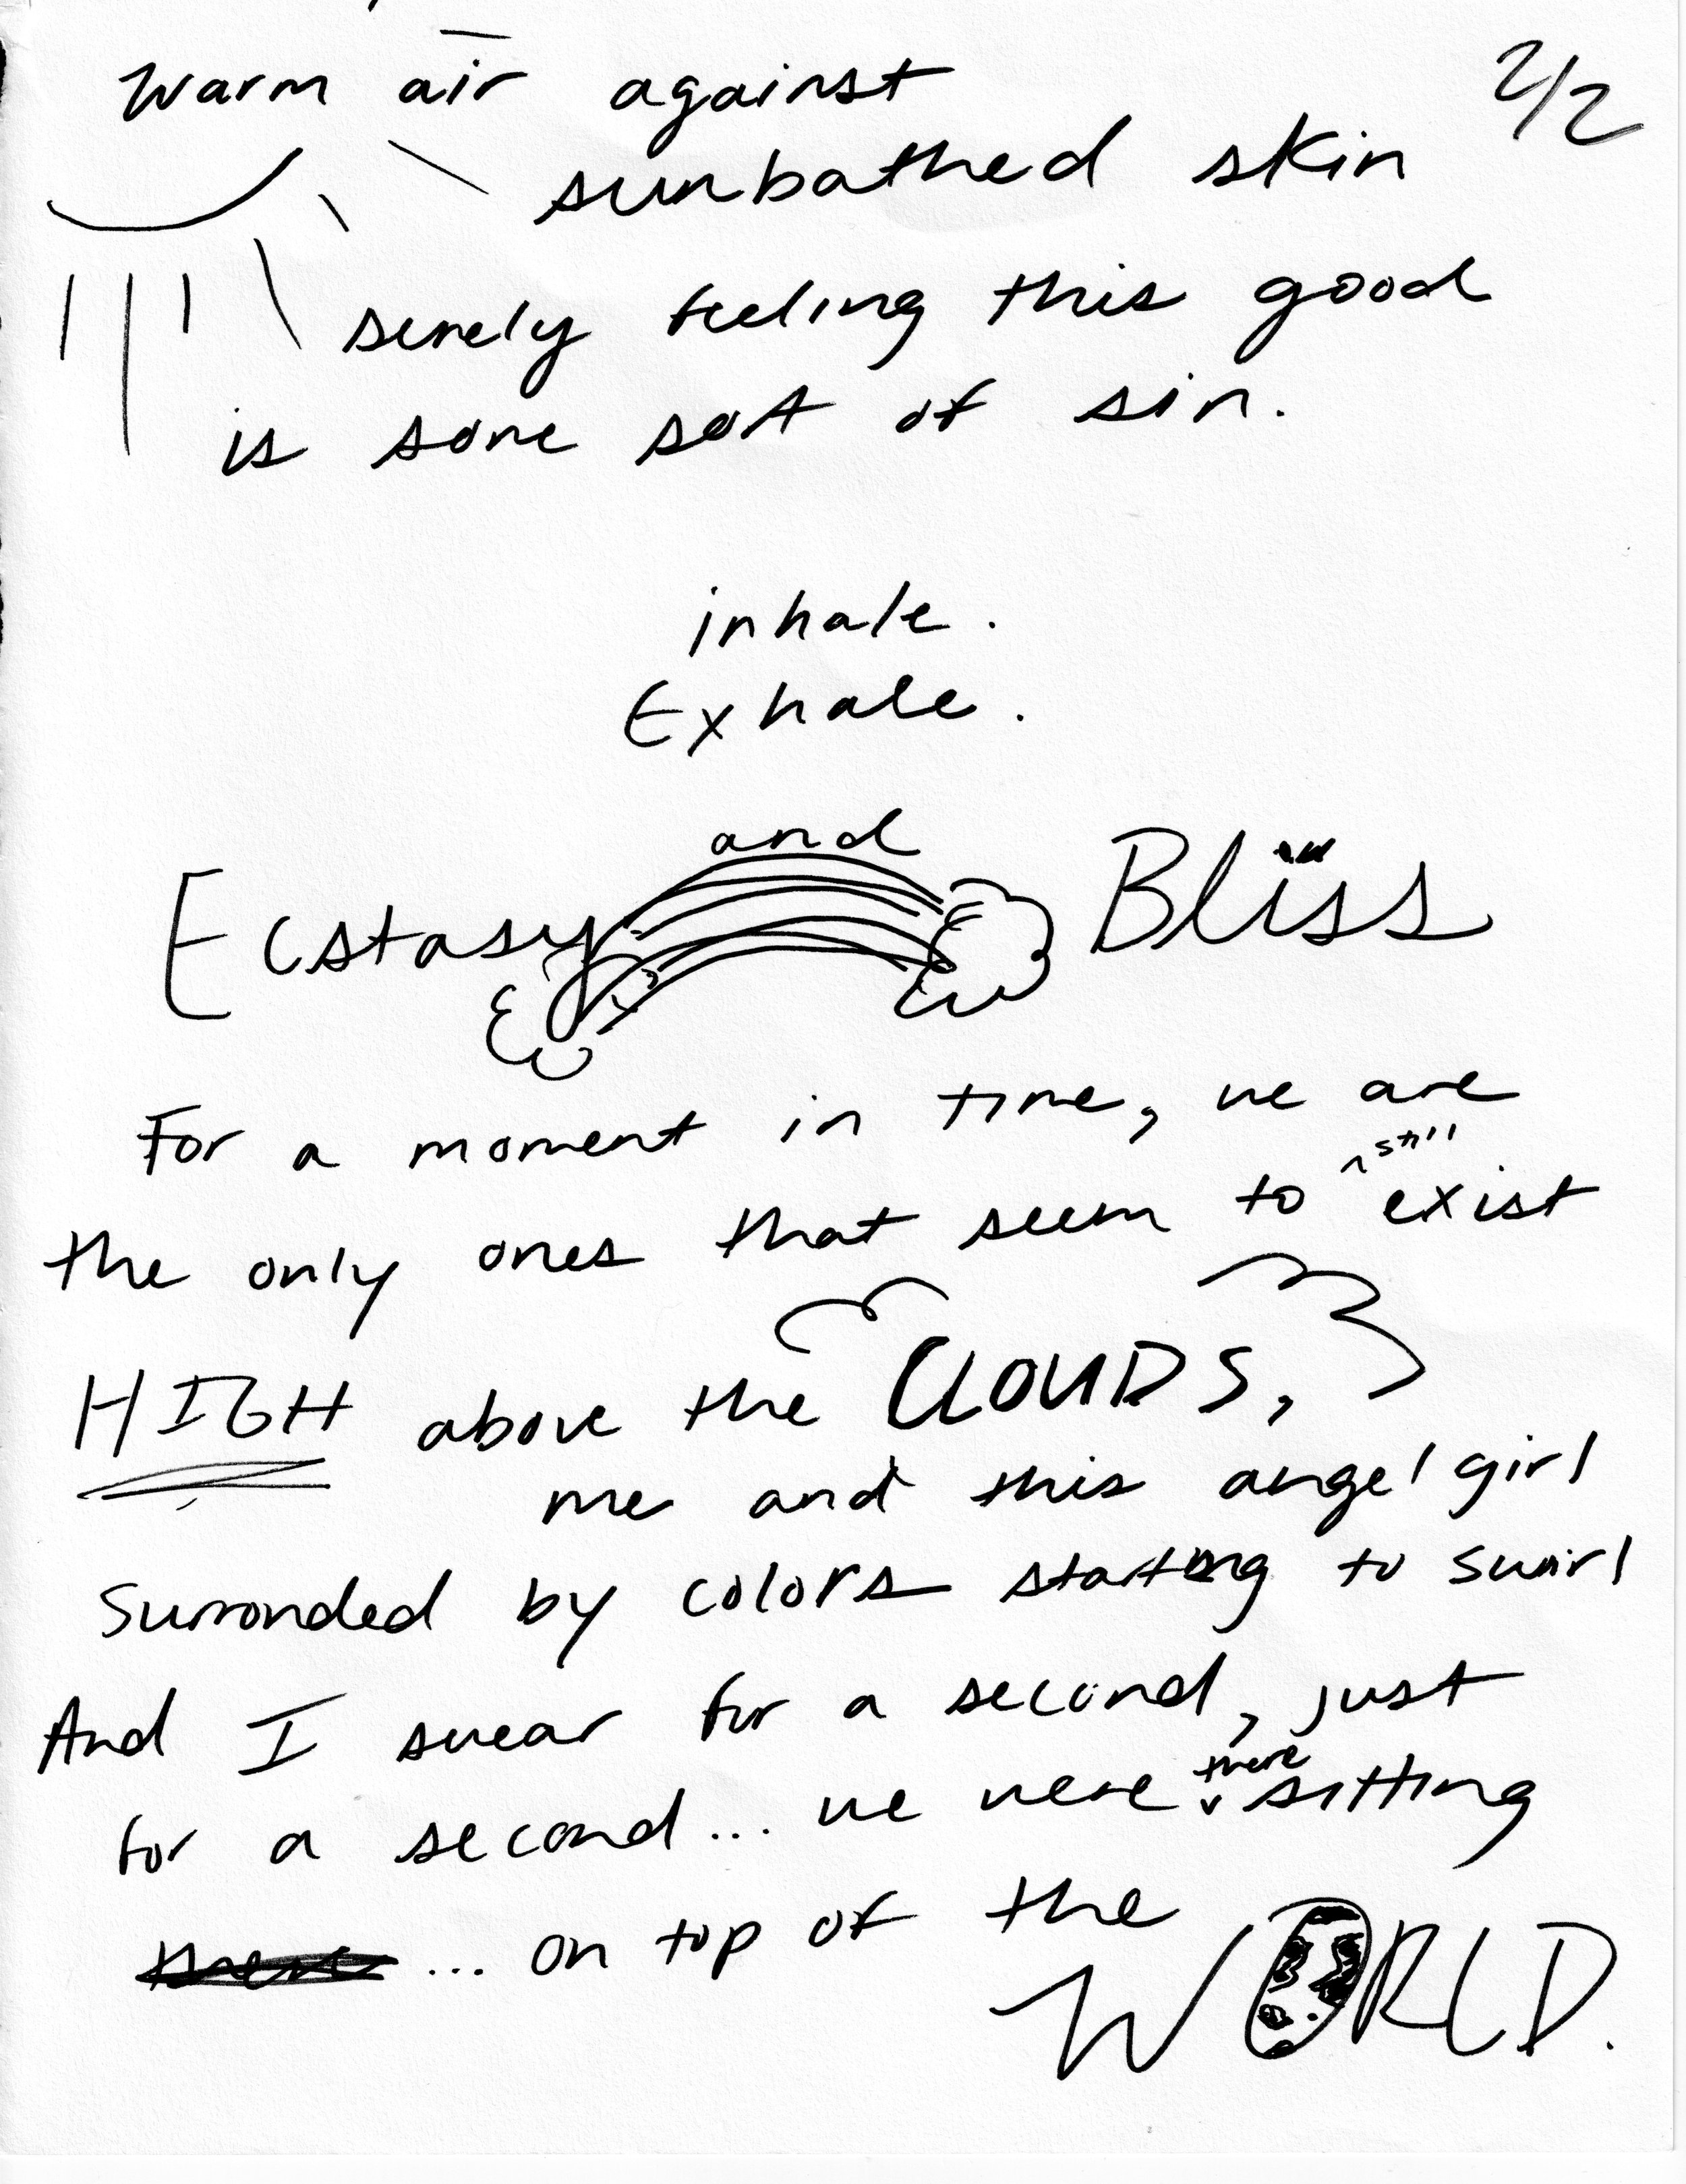 2/2
Warm air against
sunbathed skin
surely feeling this good
is some sort of sin.
inhale.
Exhale.
Ecstasy and Bliss
For a moment in time, we are
the only ones that seem to ^still exist
HIGH above the CLOUDS,
me and this angel girl
Surronded by colors starting to swirl
And I swear for a second, just
for a second... we were there sitting
... on top of the
WORLD.